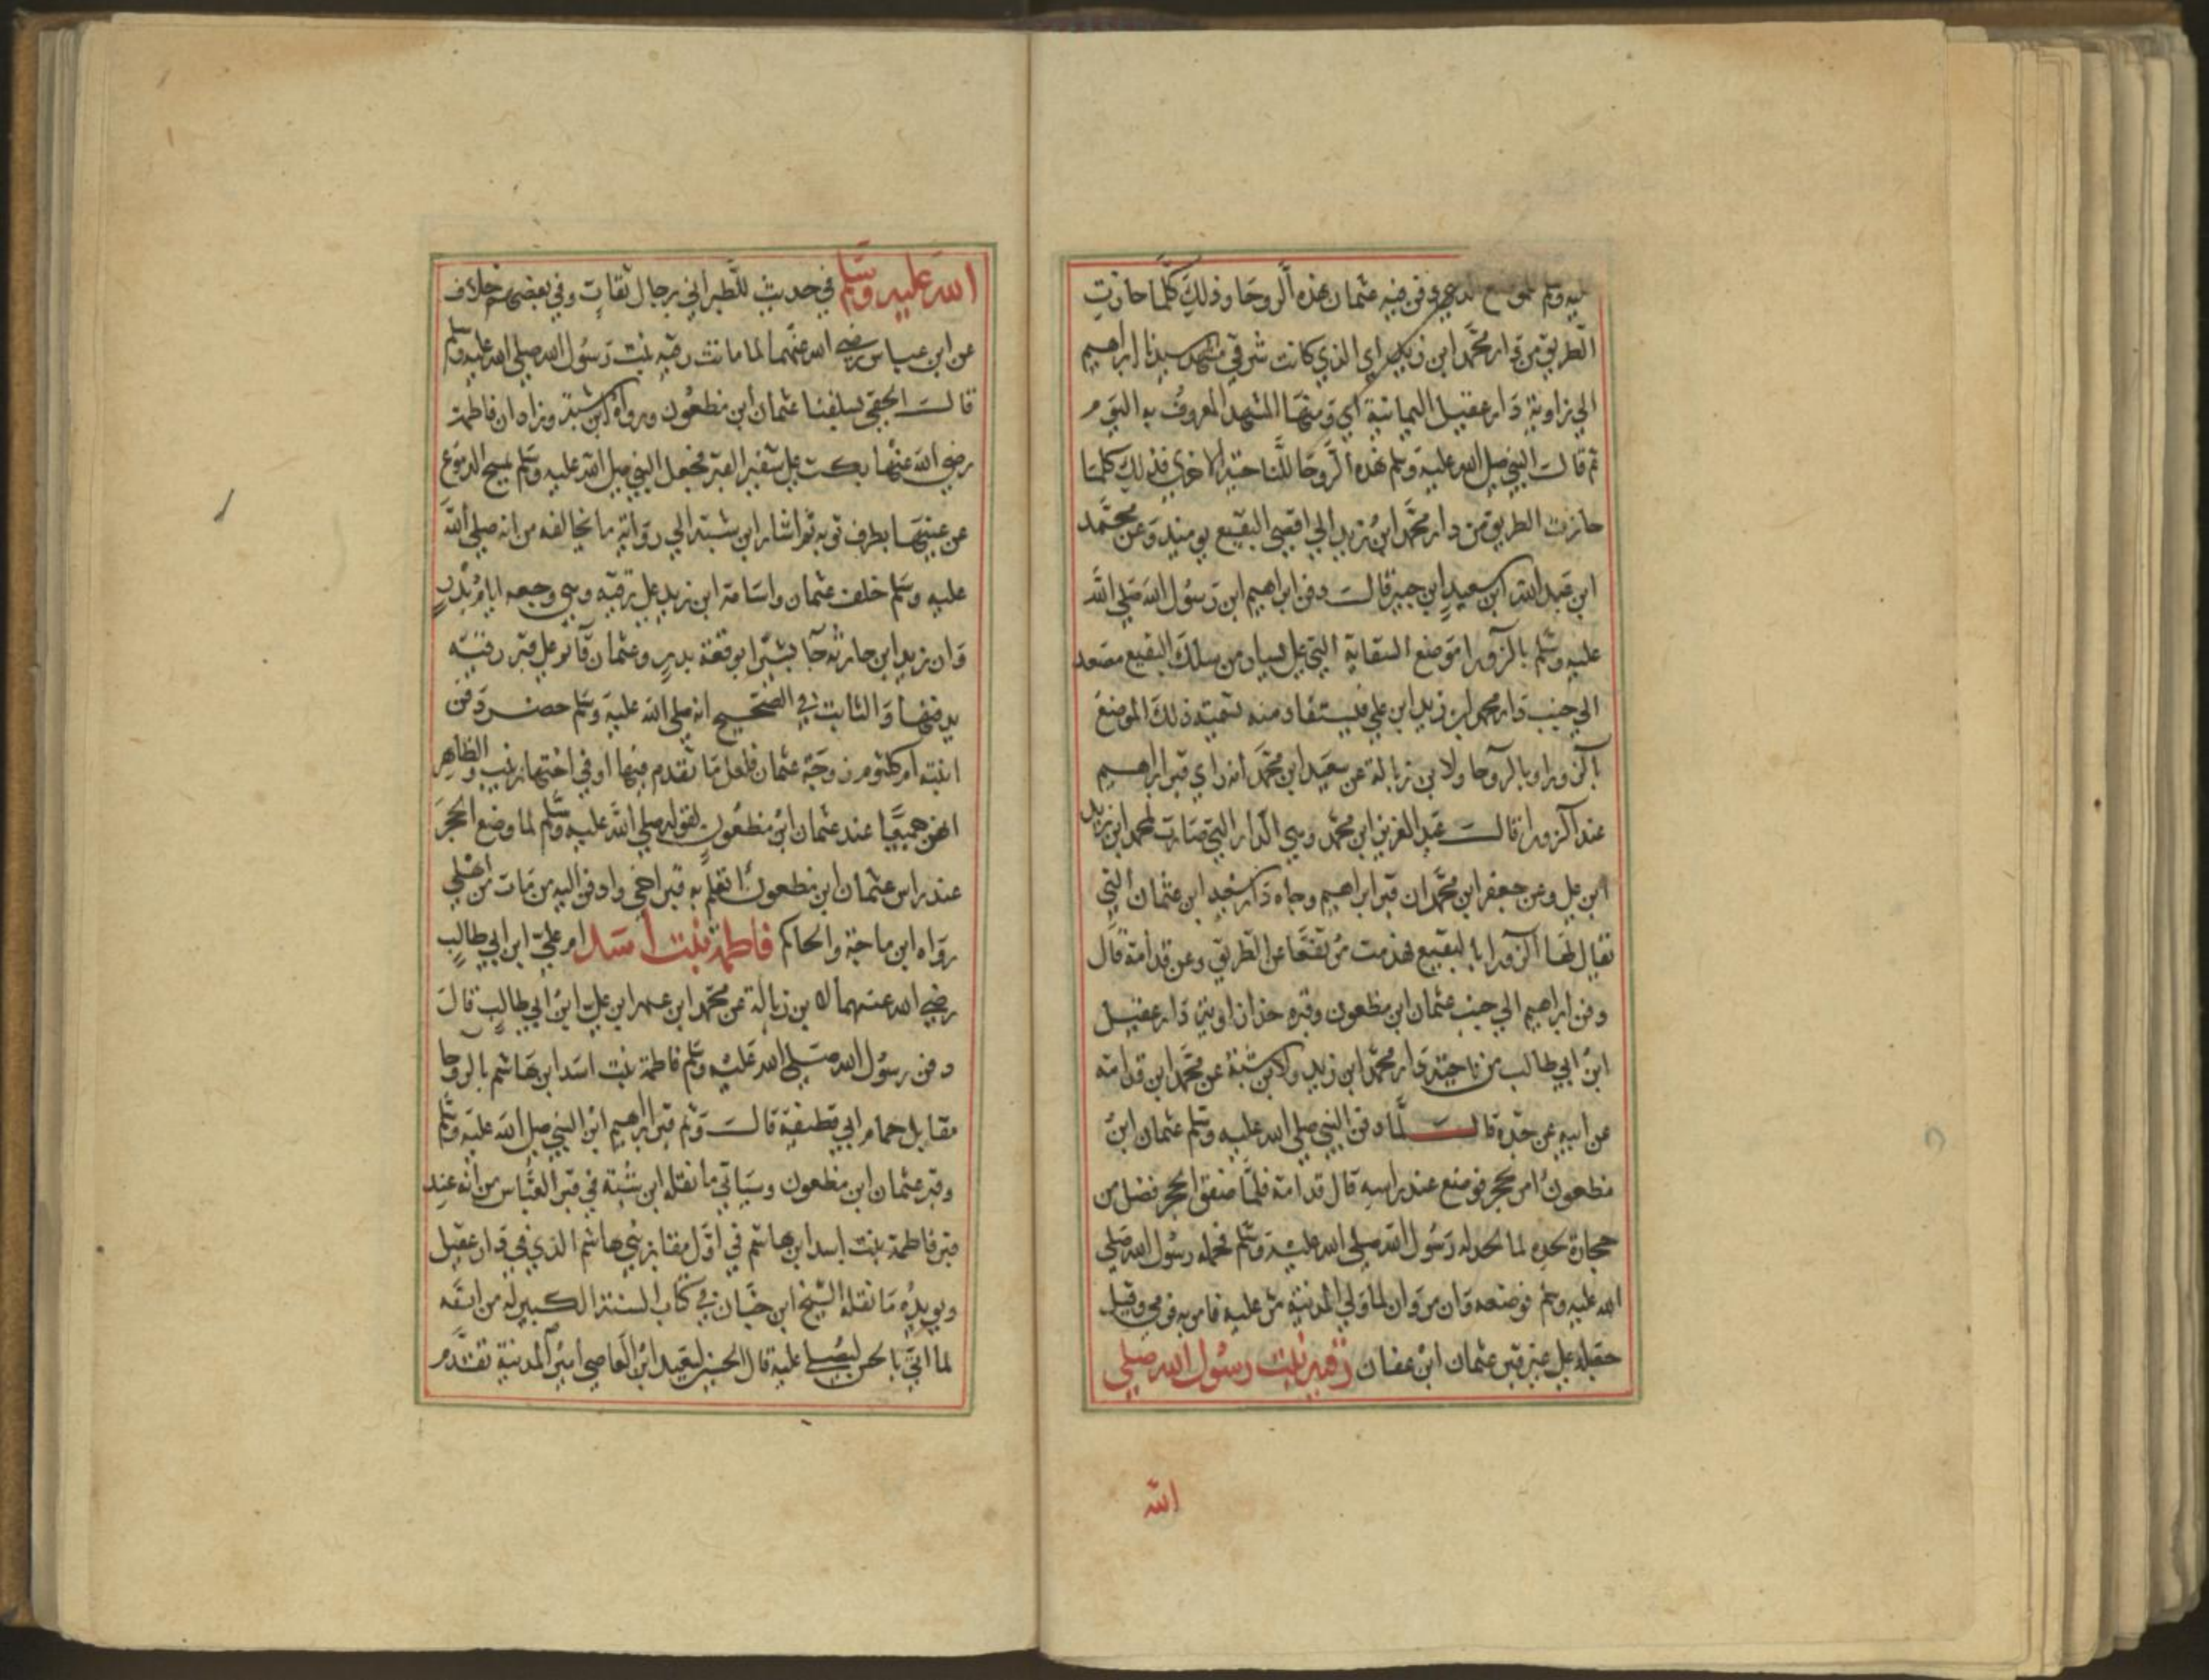 عليه وسلم للموضع الذي دفن فيه عثمان هذه الروحا وذلك كلما حازت
الطريق من دار محمد ابن زيد اي الذي كانت شرقي مشهد سيدنا ابراهيم
الي زاوية دار عقيل اليمانية اي وبينها المشهد المعروف به اليوم
ثم قالت النبي صلي الله عليه وسلم هذه الروحا للناحية الاخري فذلك كلما
حازت الطريق من دار محمد ابن زيد الي اقصي البقيع يومئذ وعن محمد
ابن عبد الله ابن سعيد ابن جبير قالت دفن ابراهيم ابن رسول الله صلي الله
عليه وسلم بالزورا موضع السقاية التي علي يسار من سلك البقيع مصعد
الي جنب دار محمد ابن زيد ابن علي فيستفاد منه تسمية ذلك الموضع
بالزورا وبالروحا ولابن زبالة عن سعيد ابن محمد انه راي قبر ابراهيم
عند الزورا قالت عبد العزيز ابن محمد وهي الدار التي صارت لمحمد ابن زيد
ابن علي وعن جعفر ابن محمد ان قبر ابراهيم وجاه دار سعيد ابن عثمان التي
تقال لها الزورا بالبقيع هدمت مرتفعا عن الطريق وعن قدامة قال
دفن ابراهيم الي جنب عثمان ابن مظعون وقبره حذا زاوية دار عقيل
ابن ابي طالب من ناحية دار محمد ابن زيد ولابن شبة عن محمد ابن قدامة
عن ابيه عن جده قالت لما دفن النبي صلي الله عليه وسلم عثمان ابن
مظعون امر بحجر فوضع عند راسه قال قدامة فلما صفق الحجر فضل من
حجارة لحده لما لحد له رسول الله صلي الله عليه وسلم فحمله رسول الله صلي
الله عليه وسلم فوضعه وان مروان لما ولي المدينة مر عليه فامر به فرمي وقيل
جعله علي قبر عثمان ابن عفان رقية بنت رسول الله صلي
الله
الله عليه وسلم في حديث للطبراني برجال ثقات وفي بعضهم خلاف
عن ابن عباس رضي الله عنهما لما ماتت رقية بنت رسول الله صلي الله عليه وسلم
قالت الحقي بسلفنا عثمان ابن مظعون ورواه ابن شبة وزاد ان فاطمة
رضي الله عنها بكت علي شفير القبر فجعل النبي صلي الله عليه وسلم يمسح الدموع
عن عينها بطرف ثوبه ثم اشار ابن شبة الي رواية ما يخالفه من انه صلي الله
عليه وسلم خلف عثمان واسامة ابن زيد علي رقية وهي وجعه ايام بدر
وان زيد ابن حارثة جا بشيرا بوقعة بدر وعثمان قائم علي قبر رقية
يدفنها والثابت في الصحيح انه صلي الله عليه وسلم حضر دفن
ابنته ام كلثوم زوجة عثمان فلعل ما تقدم فيها او في اختها زينب والظاهر
انهن جميعا عند عثمان ابن مظعون لقوله صلي الله عليه وسلم لما وضع الحجر
عند راس عثمان ابن مظعون اتعلم به قبر اخي وادفن اليه من مات من اهلي
رواه ابن ماجة والحاكم فاطمة بنت أسد ام علي ابن ابي طالب
رضي الله عنهما لابن زبالة عن محمد ابن عمر ابن علي ابن ابي طالب قالت
دفن رسول الله صلي الله عليه وسلم فاطمة بنت اسد ابن هاشم بالروحا
مقابل حمام ابي قطيفة قالت وثم قبر ابراهيم ابن النبي صلي الله عليه وسلم
وقبر عثمان ابن مظعون وسياتي ما نقله ابن شبة في قبر العباس من انه عند
قبر فاطمة بنت اسد ابن هاشم في اول مقابر بني هاشم الذي في دار عقيل
ويويده ما نقله الشيخ ابن حبان في كتاب السنة الكبير له من انه
لما اتي بالحسن ليصلي عليه قال الحسين لسعيد ابن العاصي امير المدينة تقدم